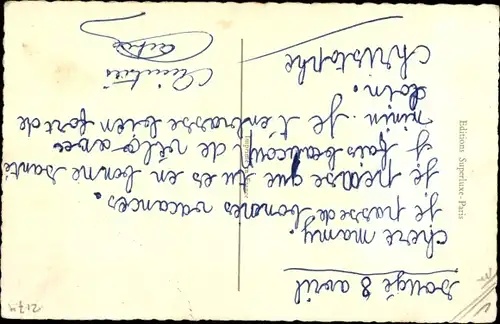 Bougé 8 avril
chere mamy.
je passe de bonnes vacances.
je pense que tu es en bonne santé
j fais beaucoup de vélo avec
minin. je t'enbrasse bien fort de
loin.
christophe
Amitiés
Editions Superluxe-Paris
2174